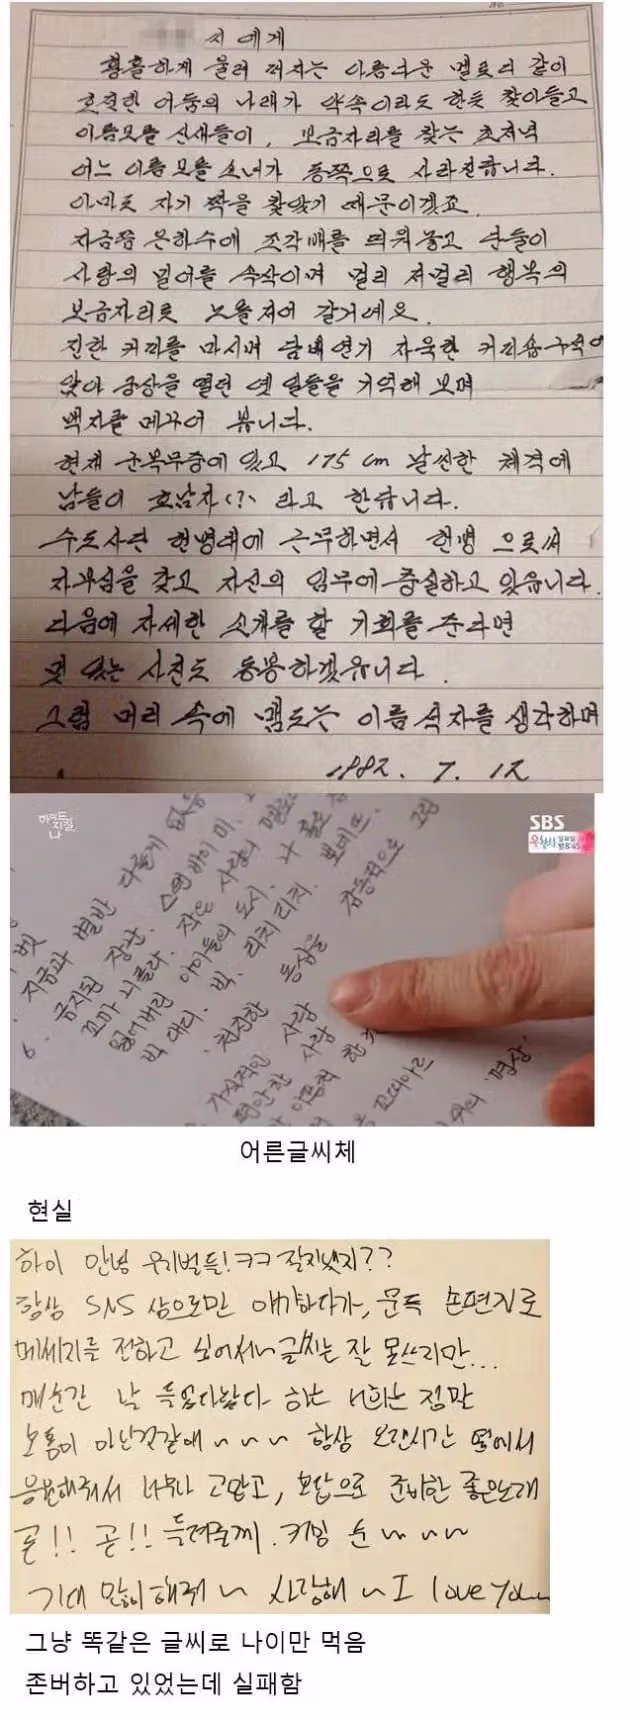 씨에게
황홀하게 울려 퍼지는 아름다운 멜로디 같이
호젓한 어둠의 나래가 약속이라도 한듯 찾아들고
이름모를 산새들이, 보금자리를 찾는 초저녁
어느 이름모를 소녀가 동쪽으로 사라진답니다.
아마도 자기 짝을 찾았기 때문이겠죠.
지금쯤 은하수에 조각배를 띄워놓고 단둘이
사랑의 밀어를 속삭이며 멀리 저멀리 행복의
보금자리로 노를저어 갈거예요.
진한 커피를 마시며 담배연기 자욱한 커피숍 구석에
앉아 공상을 떨던 옛 일들을 기억해 보며
백지를 메꾸어 봅니다.
현재 군복무중에 있고 175cm 날씬한 체격에
남들이 호남자(?) 라고 한답니다.
수도사단 헌병대에 근무하면서 헌병 으로써
자부심을 갖고 자신의 임무에 충실하고 있읍니다.
다음에 자세한 소개를 할 기회를 준다면
멋 있는 사진도 동봉하겠읍니다.
그럼 머리 속에 맴도는 이름 석자를 생각하며
1982. 7. 12
하이드
지킬
나
SBS
벳
지금과 별반 다를게 없음
6. 금지된 장난. 스텐바이미.
꼬마 니콜라. 작은 사랑의 멜로디
잃어버린 아이들의 도시. 나 홀로
빅 대디. 빅. 리치리치. 포네트.
천진한 동심을 감동적으로 그림
가식적인 사람
편안한 사람
꼬띠아르
위의 '명상'
어른글씨체
현실
하이 안녕 우리벌들! ㅋㅋ 잘지냈지??
항상 SNS 상으로만 얘기하다가, 문득 손편지로
메세지를 전하고 싶어서~ 글씨는 잘 못쓰지만...
매순간 날 들었다놨다 하는 너희는 정말
보통이 아닌것같애 ~ ~ ~ 항상 오랜시간 멀에서
응원해줘서 너무나 고맙고, 보답으로 준비한 좋은노래
곧!! 곧!! 들려줄께. 커밍 순 ~ ~ ~
기대 많이해줘 ~ 사랑해 ~ I love you~
그냥 똑같은 글씨로 나이만 먹음
존버하고 있었는데 실패함